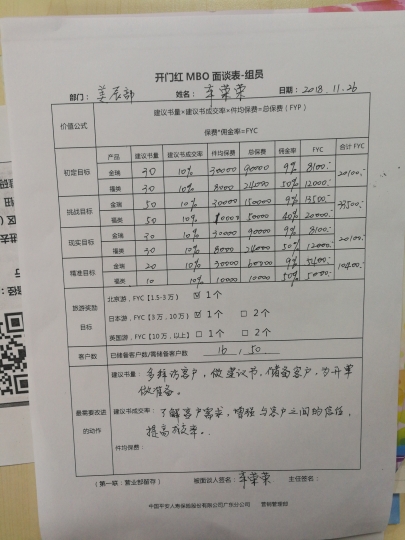 开门红 MBO 面谈表-组员
部门： 姜辰部 姓名： 车荣荣 日期： 2018.11.26
价值公式
建议书量×建议书成交率×件均保费=总保费（FYP）
保费*佣金率=FYC
产品 建议书量 建议书成交率 件均保费 总保费 佣金率 FYC 合计 FYC
初定目标 金瑞 30 10% 30000 90000 9% 8100 20100
福类 30 10% 8000 24000 50% 12000
挑战目标 金瑞 50 10% 30000 150000 9% 13500 33500
福类 50 10% 10000 50000 40% 20000
现实目标 金瑞 30 10% 30000 90000 9% 8100 20100
福类 30 10% 8000 24000 50% 12000
精准目标 金瑞 20 10% 30000 60000 9% 5400 10400
福类 10 10% 10000 10000 50% 5000
旅游奖励目标
北京游，FYC【1.5-3 万】 ☑ 1个
日本游，FYC【3 万，10万】 ☑ 1个 □ 2个
美国游，FYC【10 万，以上】 □ 1个 □ 2个
客户数 已储备客户数/需储备客户数 16，50
最需要改进的动作
建议书量： 多拜访客户，做建议书，储备客户，为开单
做准备。
建议书成交率： 了解客户需求，增强与客户之间的信任，
提高效率。
件均保费：
（第一联：营业部留存） 被面谈人签名： 车荣荣 主任签名：
中国平安人寿保险股份有限公司广东分公司 营销管理部